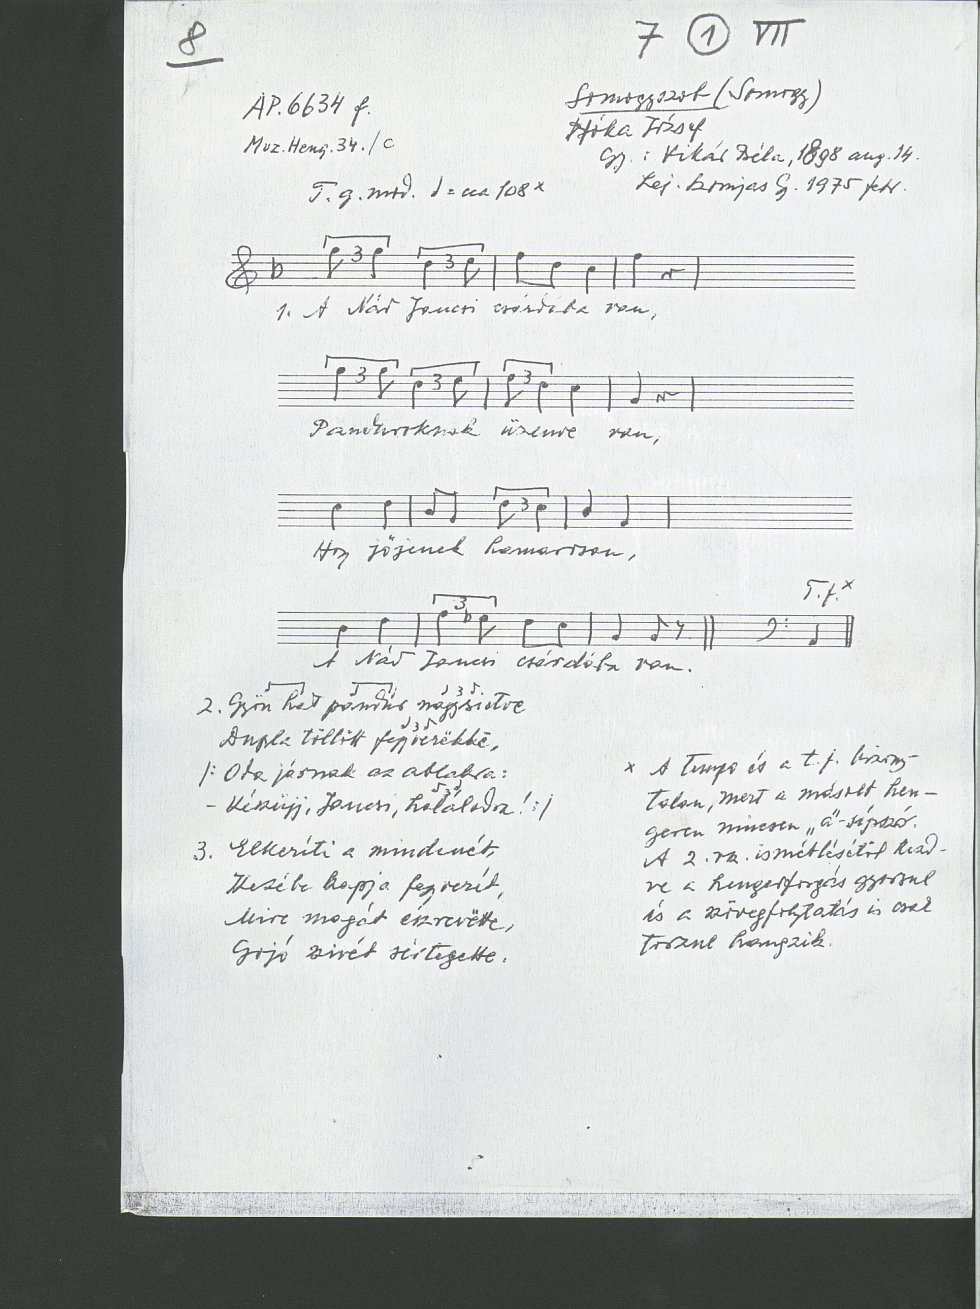 8
7 ① VII
AP. 6634 f.
Muz. Heng. 34./c
Somogyszob (Somogy)
Hóka József
Gy.: Vikár Béla, 1898 aug. 14.
Lej. Szomjas Gy. 1975 febr.
T. g. mod. ♩ = cca 108 x
3 3
1. A Nád Jancsi csárdába van,
3 3 3
Panduroknak üzenve van,
3
Hogy jöjjenek hamarosan,
T. f. x
3
A Nád Jancsi csárdába van.
2. Gyün hat pandúr nagyszietve
Dupla töllött fegyverëkkë,
|: Oda járnak az ablakra:
- Készüjj, Jancsi, halálodra! :|
3. Elkeríti a mindenét,
Kezébe kapja fegyverét,
Mire magát észrevëtte,
Golyó szivét sértegette.
x A tempo és a t. f. bizony-
talan, mert a másolt hen-
geren nincsen „a"-sípszó.
A 2. vsz. ismétlésétől kezd-
ve a hengerforgás gyorsul
és a szövegfolytatás is csak
torzul hangzik.